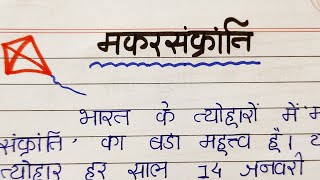 मकरसंक्रांति
भारत के त्योहारों में
संक्रांति' का बडा महत्त्व है।
त्योहार हर साल 14 जनवरी